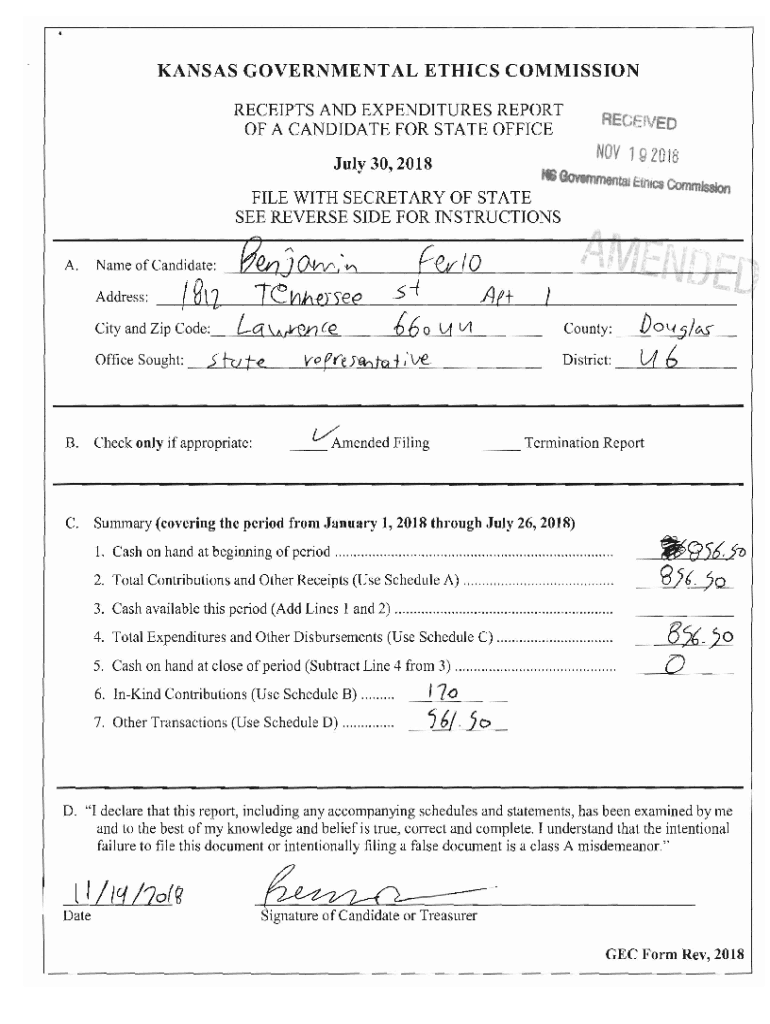 KANSAS GOVERNMENTAL ETHICS COMMISSION
RECEIPTS AND EXPENDITURES REPORT
OF A CANDIDATE FOR STATE OFFICE
RECEIVED
July 30, 2018
NOV 19 2018
KS Governmental Ethics Commission
FILE WITH SECRETARY OF STATE
SEE REVERSE SIDE FOR INSTRUCTIONS
AMENDED
A. Name of Candidate: Benjamin Ferlo
Address: 1812 Tennersee st Apt 1
City and Zip Code: Lawrence 66044 County: Douglas
Office Sought: State representative District: 46
B. Check only if appropriate: ✓ Amended Filing ____ Termination Report
C. Summary (covering the period from January 1, 2018 through July 26, 2018)
1. Cash on hand at beginning of period 856.50
2. Total Contributions and Other Receipts (Use Schedule A) 856.50
3. Cash available this period (Add Lines 1 and 2)
4. Total Expenditures and Other Disbursements (Use Schedule C) 856.50
5. Cash on hand at close of period (Subtract Line 4 from 3) 0
6. In-Kind Contributions (Use Schedule B) 170
7. Other Transactions (Use Schedule D) 561.50
D. “I declare that this report, including any accompanying schedules and statements, has been examined by me
and to the best of my knowledge and belief is true, correct and complete. I understand that the intentional
failure to file this document or intentionally filing a false document is a class A misdemeanor.”
11/19/2018
Date Signature of Candidate or Treasurer
GEC Form Rev, 2018